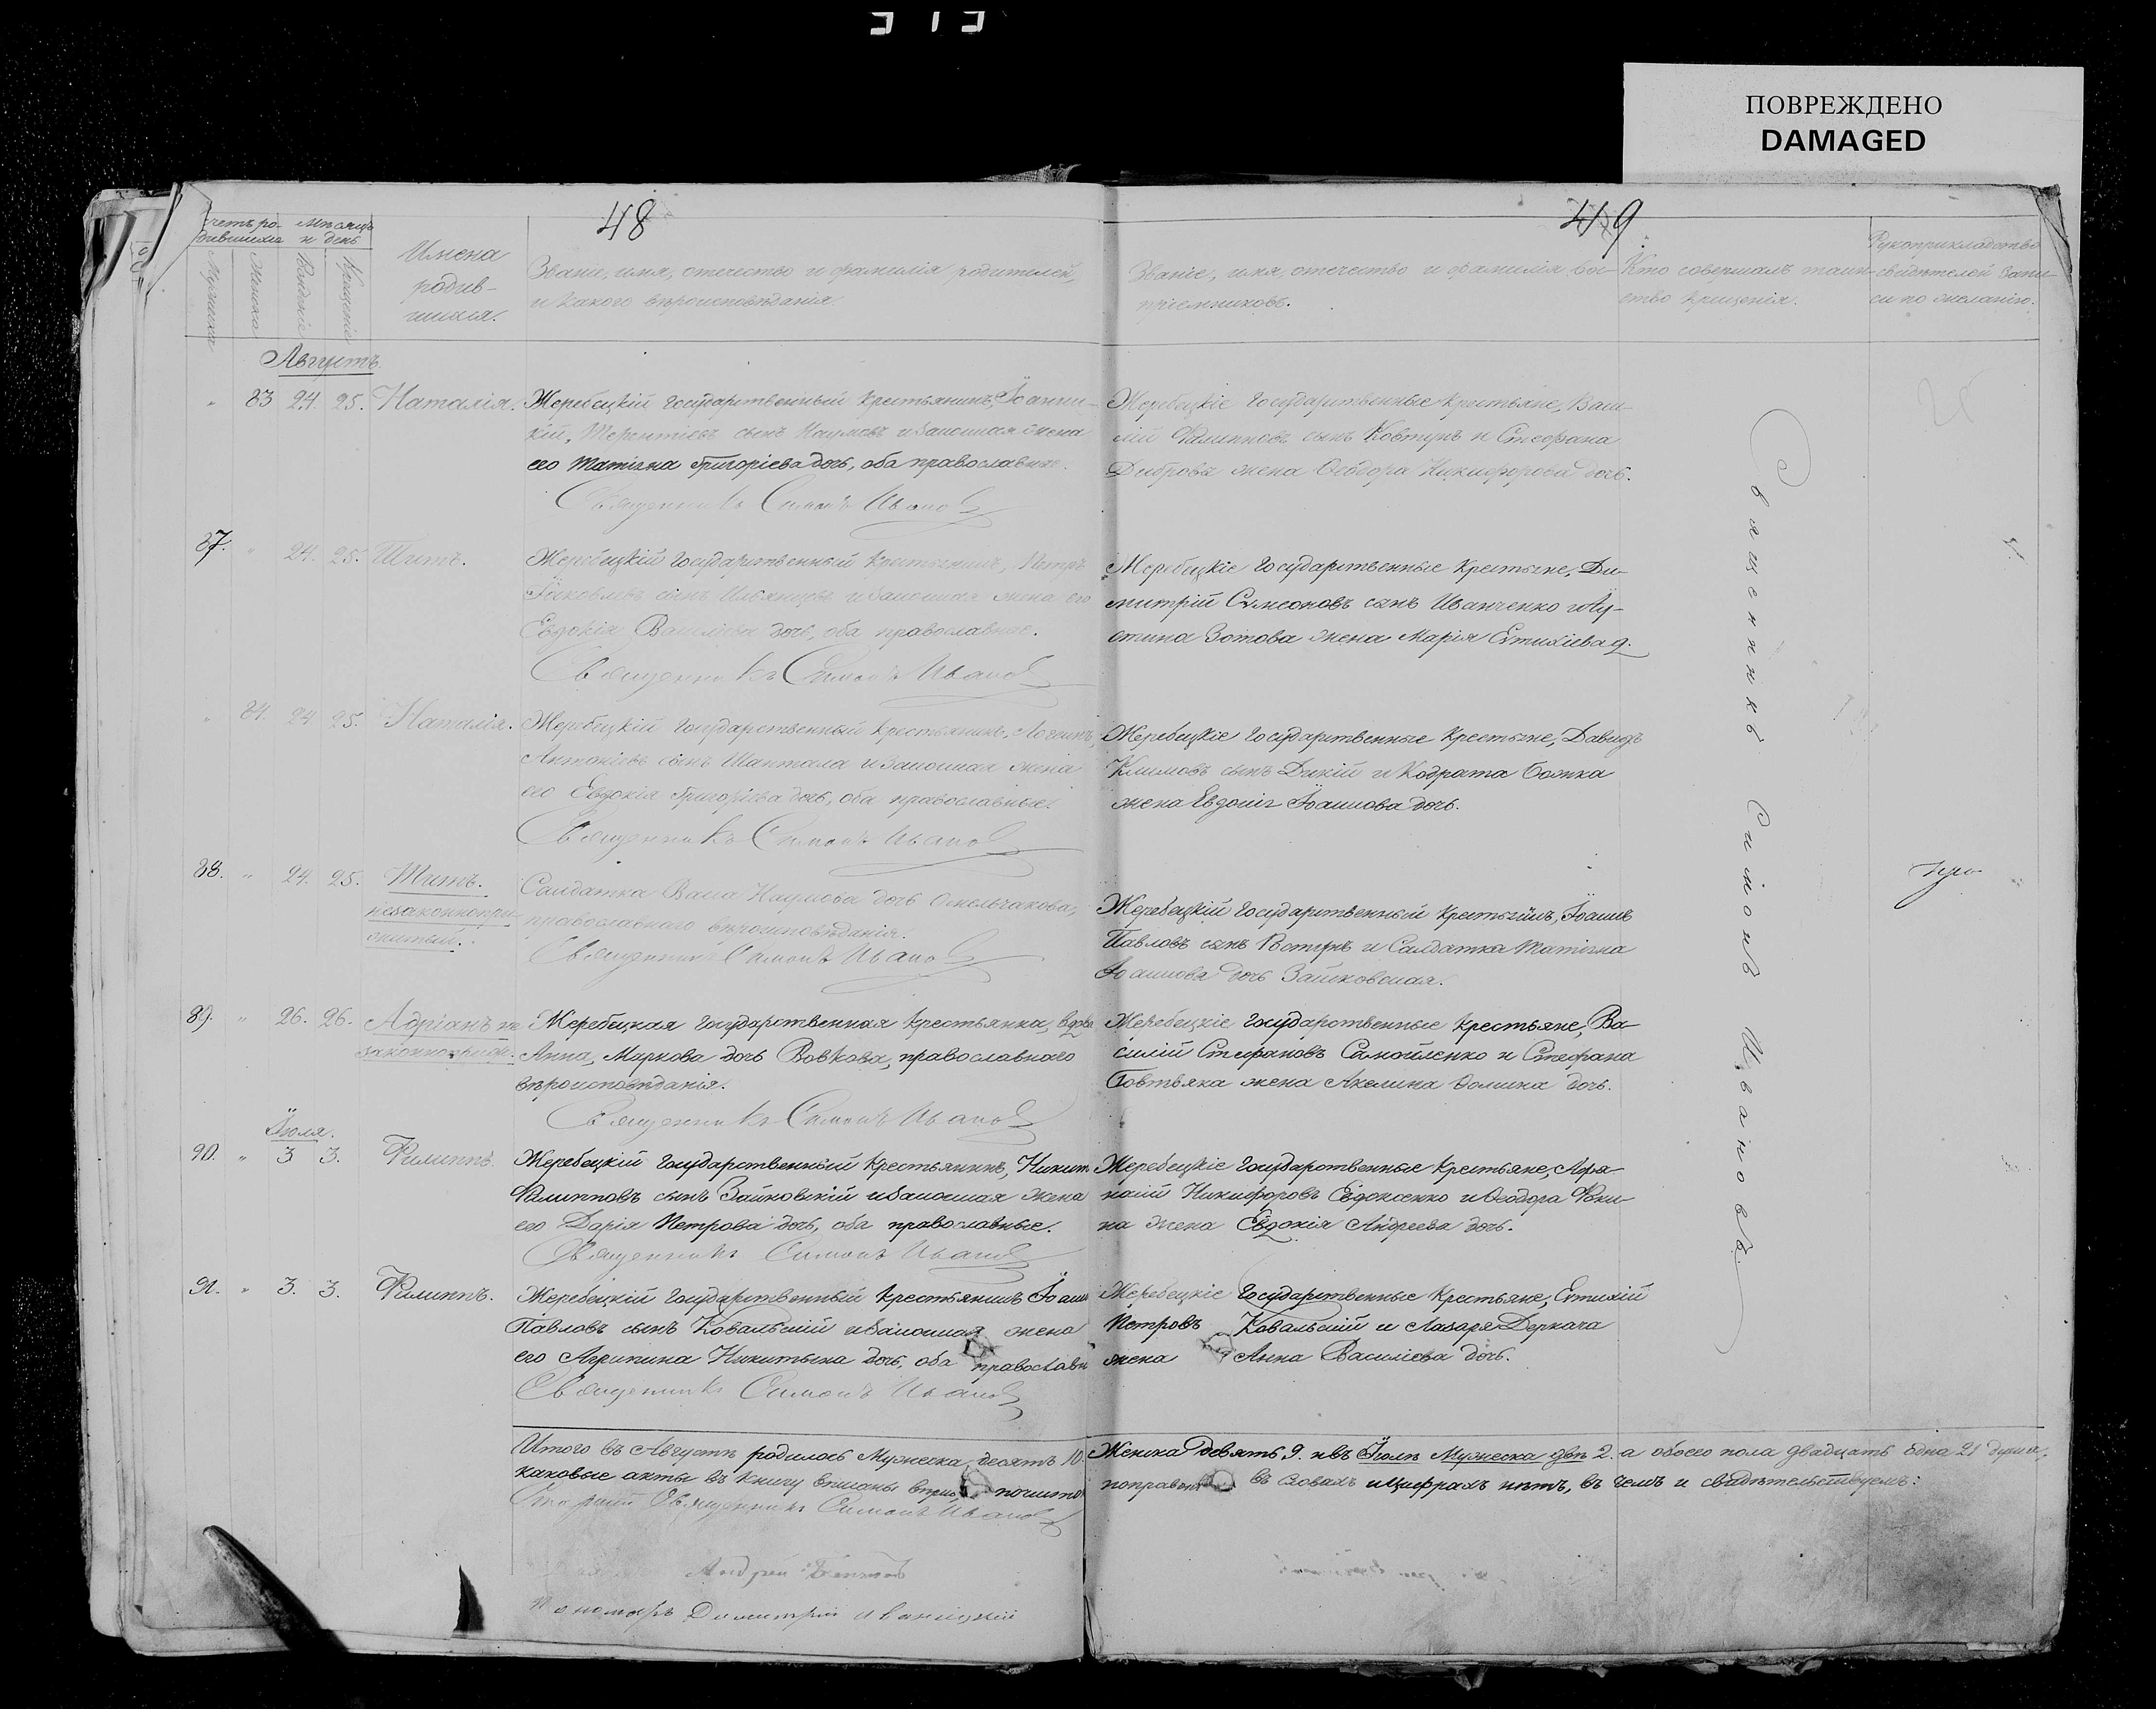 ПОВРЕЖДЕНО
DAMAGED
48
49
Счетъ ро- Мѣсяцъ
дившихся и день
Мужеска
Женска
Рожденіе
Крещеніе
Имена
родив-
шихся.
Званіе, имя, отечество и фамилія родителей,
и какого вѣроисповѣданія
Званіе, имя, отечество и фамилія вос-
пріемниковъ.
Кто совершалъ таин-
ство крещенія.
Рукоприкладство
свидѣтелей запи-
си по желанію.
Августъ.
" 83 24. 25. Наталія.
Жеребецкій государственный крестьянинъ, Іоанни-
кій, Терентіевъ сынъ Наумовъ и законная жена
его Татіяна Григоріева дочь, оба православные.
Священникъ Симонъ Ивановъ
Жеребецкіе государственные крестьяне, Васи-
лій Филипповъ сынъ Ковтунъ и Стефана
Диброва жена Ѳеодора Никифорова дочь.
87. " 24. 25. Титъ.
Жеребецкій государственный крестьянинъ, Петръ
Іаковлевъ сынъ и законная жена его
Евдокія Василіева дочь, оба православные.
Священникъ Симонъ Ивановъ
Жеребецкіе государственные крестьяне, Ди-
митрій Сѵмеоновъ сынъ Иванченко и Іу-
стина Зотова жена Марія Евтихіева д.
" 84. 24 25. Наталія.
Жеребецкій государственный крестьянинъ, Логгинъ
Антоніевъ сынъ Шаптала и законная жена
его Евдокія Григоріева дочь, оба православные.
Священникъ Симонъ Ивановъ
Жеребецкіе государственные крестьяне, Давидъ
Климовъ сынъ Дикій и Кодрата Божка
жена Евдокія Іоаннова дочь.
88. " 24. 25. Титъ.
незаконнопри-
житый.
Солдатка Васса Наумова дочь Омельчакова,
православнаго вѣроисповѣданія.
Священникъ Симонъ Ивановъ
Жеребецкій государственный крестьянинъ, Іоаннъ
Павловъ сынъ и Солдатка Татіяна
Іоаннова дочь Зайковская.
89. " 26. 26. Адріанъ не
законноприж.
Жеребецкая государственная крестьянка, вдова
Анна, Маркова дочь Вовкова, православнаго
вѣроисповѣданія.
Священникъ Симонъ Ивановъ
Жеребецкіе государственные крестьяне, Ва-
силій Стефановъ Самойленко и Стефана
Бовтьяка жена Акелина Ѳомина дочь.
Іюля.
90. " 3 3. Филиппъ.
Жеребецкій государственный крестьянинъ, Никит
Филипповъ сынъ Зайковскій и законная жена
его Дарія Петрова дочь, оба православные.
Священникъ Симонъ Ивановъ
Жеребецкіе государственные крестьяне, Афа-
насій Никифоровъ Евдоксенко и Ѳеодора Фоки-
на жена Евдокія Андреева дочь.
91. " 3. 3. Филиппъ.
Жеребецкій государственный крестьянинъ Іоанн
Павловъ сынъ Ковальскій и законная жена
его Агрипина Никитина дочь, оба православн
Священникъ Симонъ Ивановъ
Жеребецкіе государственные крестьяне, Евтихій
Петровъ Ковальскій и Лазаря Деркача
жена Анна Василіева дочь.
Священникъ Симонъ Ивановъ.
Итого въ Августѣ родилось Мужеска десять 10. Женска девять 9. и въ Іюлѣ Мужеска два 2. а обоего пола двадцать одна 21 душа,
каковые акты въ книгу вписаны почисто поправокъ въ словахъ и цифрахъ нѣтъ, въ чемъ и свидѣтельствуемъ:
Старшій Священникъ Симонъ Ивановъ
Андрей
Пономарь Димитрій Иваницкій